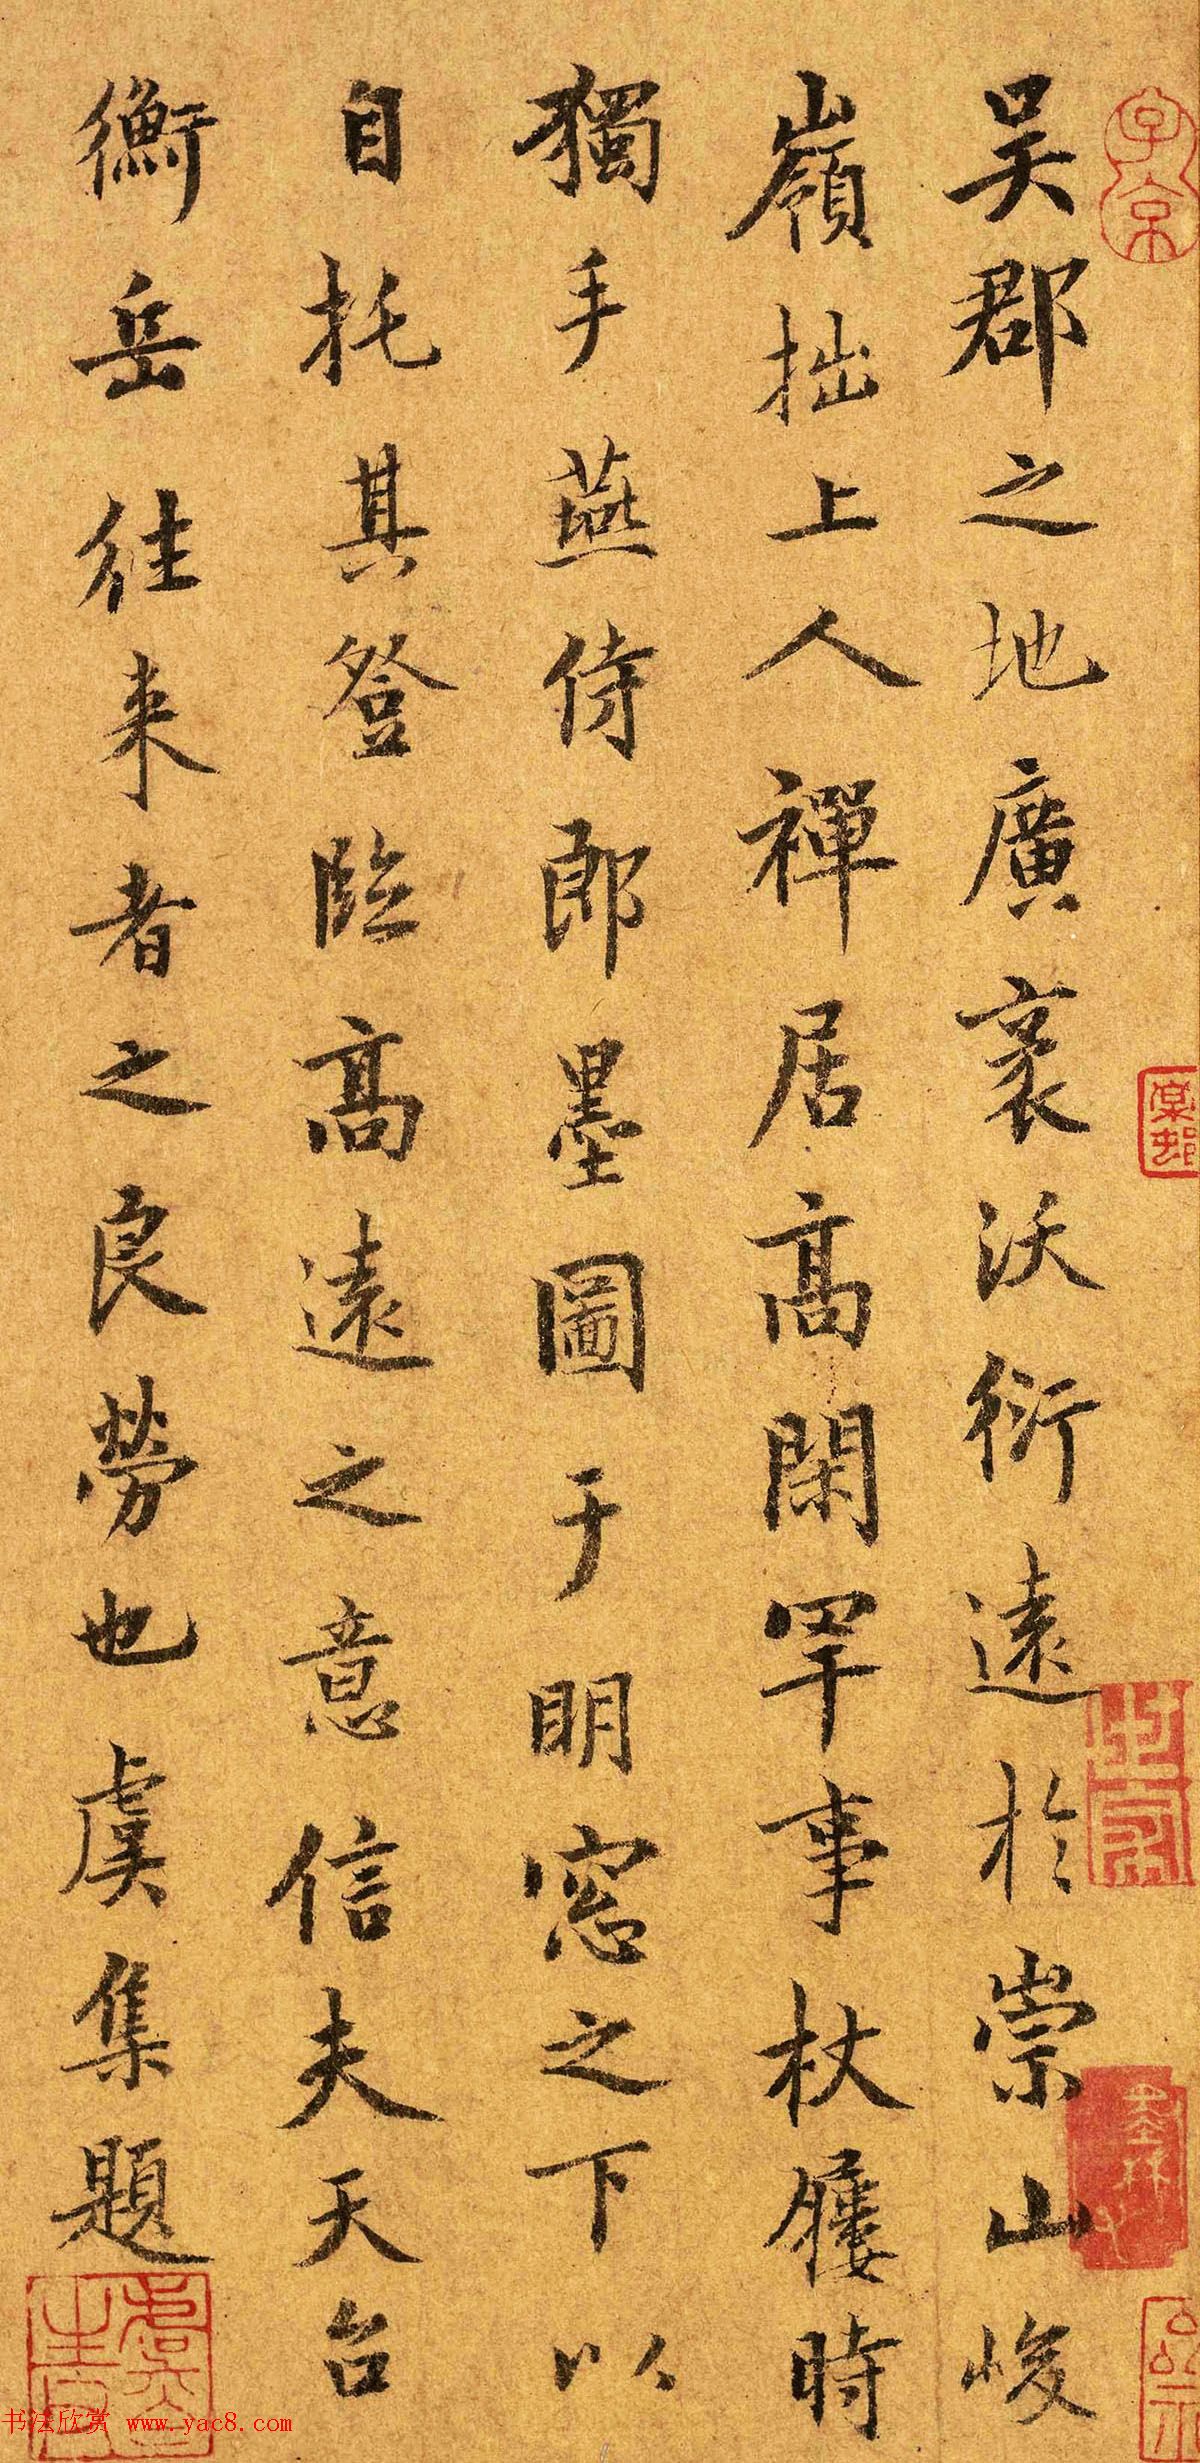 吳郡之地廣袤沃衍遠於崇山峻
嶺拙上人禪居高閑罕事杖屨時
獨手燕侍郎墨圖于明窓之下以
自托其登臨高遠之意信夫天台
衡岳往来者之良勞也虞集題
书法欣赏 www.yac8.com